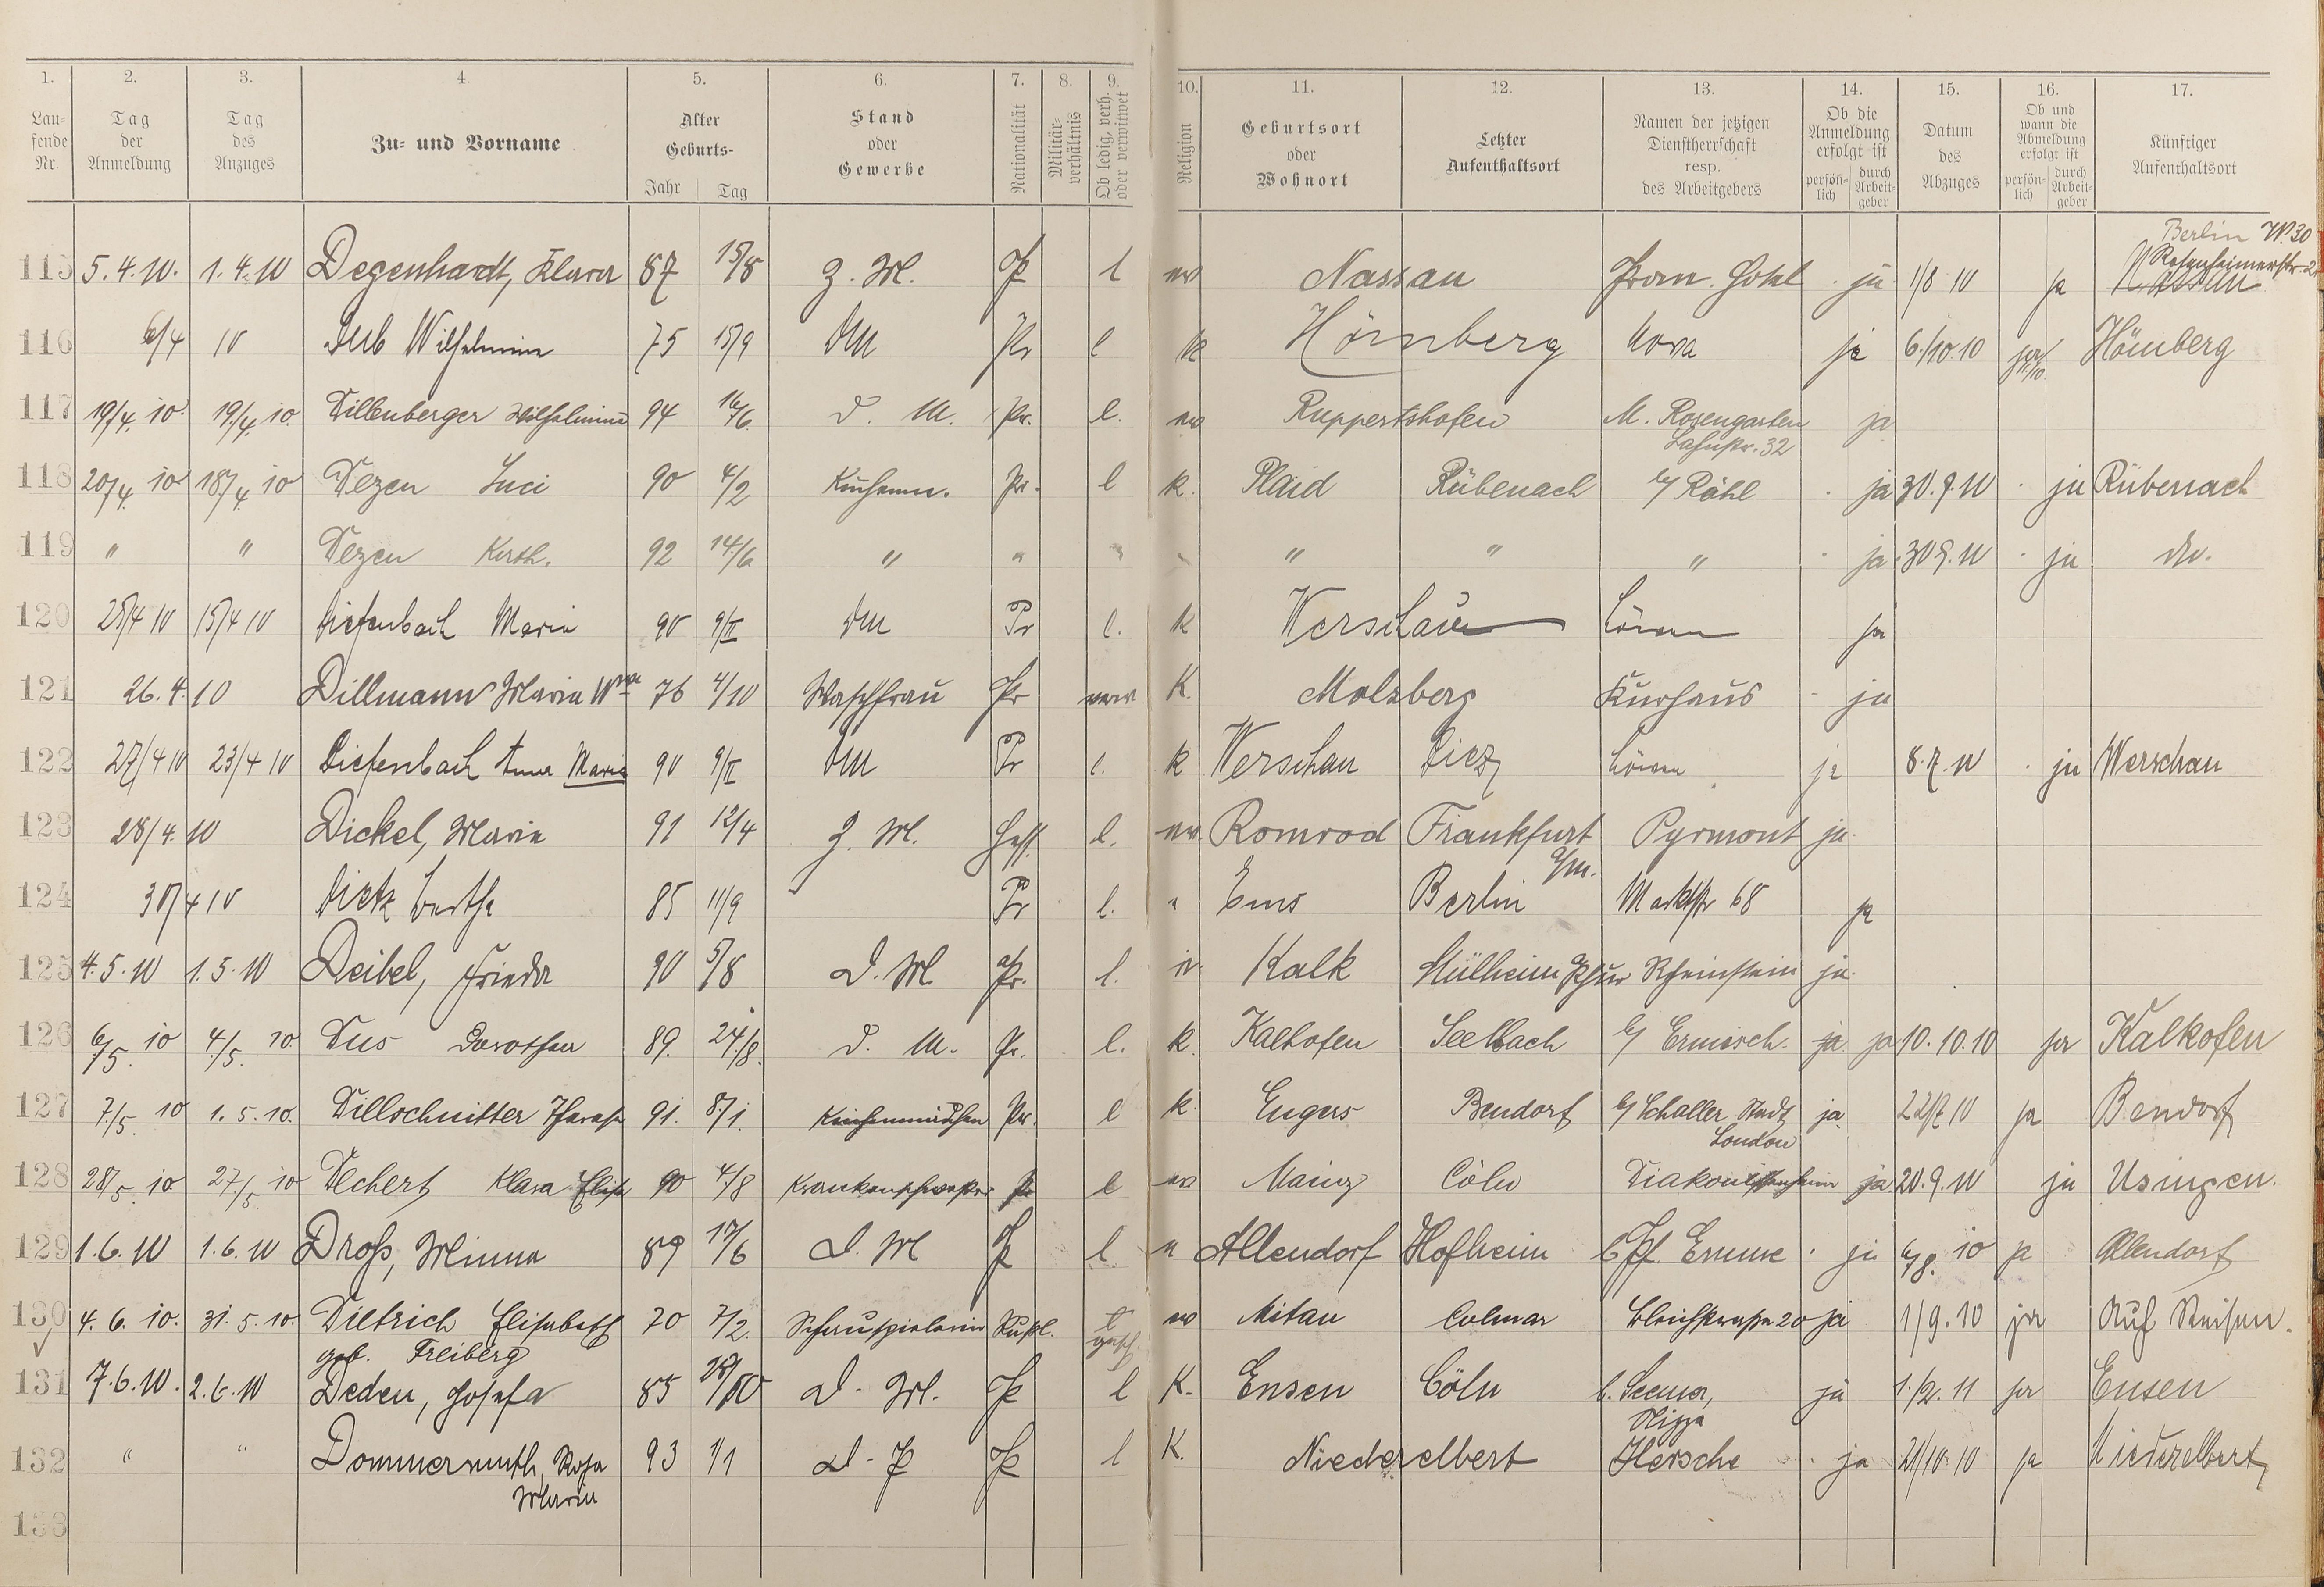 1. 2. 3. 4. 5. 6. 7. 8. 9. 10. 11. 12. 13. 14. 15. 16. 17.
Laufende Nr. | Tag der Anmeldung | Tag des Anzuges | Zu- und Vorname | Alter Geburts- Jahr Tag | Stand oder Gewerbe | Nationalität | Militärverhältnis | Ob ledig, verh. oder verwitwet | Religion | Geburtsort oder Wohnort | Letzter Aufenthaltsort | Namen der jetzigen Dienstherrschaft resp. des Arbeitgebers | Ob die Anmeldung erfolgt ist persönlich durch Arbeitgeber | Datum des Abzuges | Ob und wann die Abmeldung erfolgt ist persönlich durch Arbeitgeber | Künftiger Aufenthaltsort
Berlin W 30
115 5.4.10. 1.4.10 Degenhardt, Klara 87 15/8 Z. M. Pr l Nassau ja 1/8 10 ja Nassau
116 6/4 10 Wilhelmine 75 15/9 DM Pr l k Hömberg ja 6./10.10 ja Hömberg
117 19/4. 10. 19/4. 10. Dillenberger Wilhelmine 94 16/6. D. M. Pr. l. Ruppertshofen M. Rosengarten ja
Lahnstr. 32
118 20/4. 10 18/4. 10 Dezen Luci 90 4/2 Pr. l k. Plaid Rübenach b/ Röhl ja 30.9.10 ja Rübenach
119 " " Dezen Kath. 92 14/6 " " " " " ja 30.9.10 ja do.
120 25/4 10 15/4 10 Diefenbach Maria 90 9/II DM Pr l. k Werschau Löwen ja
121 26.4.10 Dillmann Maria Wwe 76 4/10 Waschfrau Pr verw K. Molsberg Kurhaus ja
122 27/4 10 23/4 10 Diefenbach Anna Maria 90 9/II DM Pr l. k Werschau Diez Löwen ja 8.7.10 ja Werschau
123 28/4.10 Dickel, Maria 91 12/4 Z. M. Hess. l. Romrod Frankfurt Pyrmont ja
a/m.
124 30/4 10 Dietz Bertha 85 11/9 Pr l. " Ems Berlin Marktstr 68 ja
125 4.5.10 1.5.10 Deibel, Frieda 90 5/8 D. M. Pr. l. Kalk Mülheim Rhein Rheinstein ja
126 6/5. 10 4/5. 10 Dus Dorothea 89. 24./8. D. M. Pr. l. k. Kalkofen Seelbach b/ Ermisch ja ja 10.10.10 ja Kalkofen
127 7./5. 10 1.5.10. Dillschnitter Therese 91. 8/1. Küchenmädchen Pr. l k. Engers Bendorf b/ Schaller Stadt ja 22/7 10 ja Bendorf
London
128 28/5. 10 27/5. 10 Dechert Klara Elise 90 4/8 Krankenschwester Pr l Mainz Cöln Diakonissenheim ja 20.9.10 ja Usingen.
129 1.6.10 1.6.10 Droß, Minna 89 17/6 D. M Pr l Allendorf Hofheim ja 6/8. 10 ja Allendorf
130 4.6.10. 31.5.10 Dietrich Elisabeth 70 7/2. Schauspielerin Rußl. gesch Mitau Colmar Bleichstraße 20 ja 1/9.10 ja Auf Reisen.
geb. Freiberg
131 7.6.10. 2.6.10 Deden, Josefa 85 28/10 D. M. Pr l K. Ensen Cöln ja 1./2. 11 ja Ensen
Nizza
132 " " Dommermuth, Rosa 93 1/1 Pr l K. Niederelbert Hersche ja 21/10.10 ja Niederelbert
Maria
133